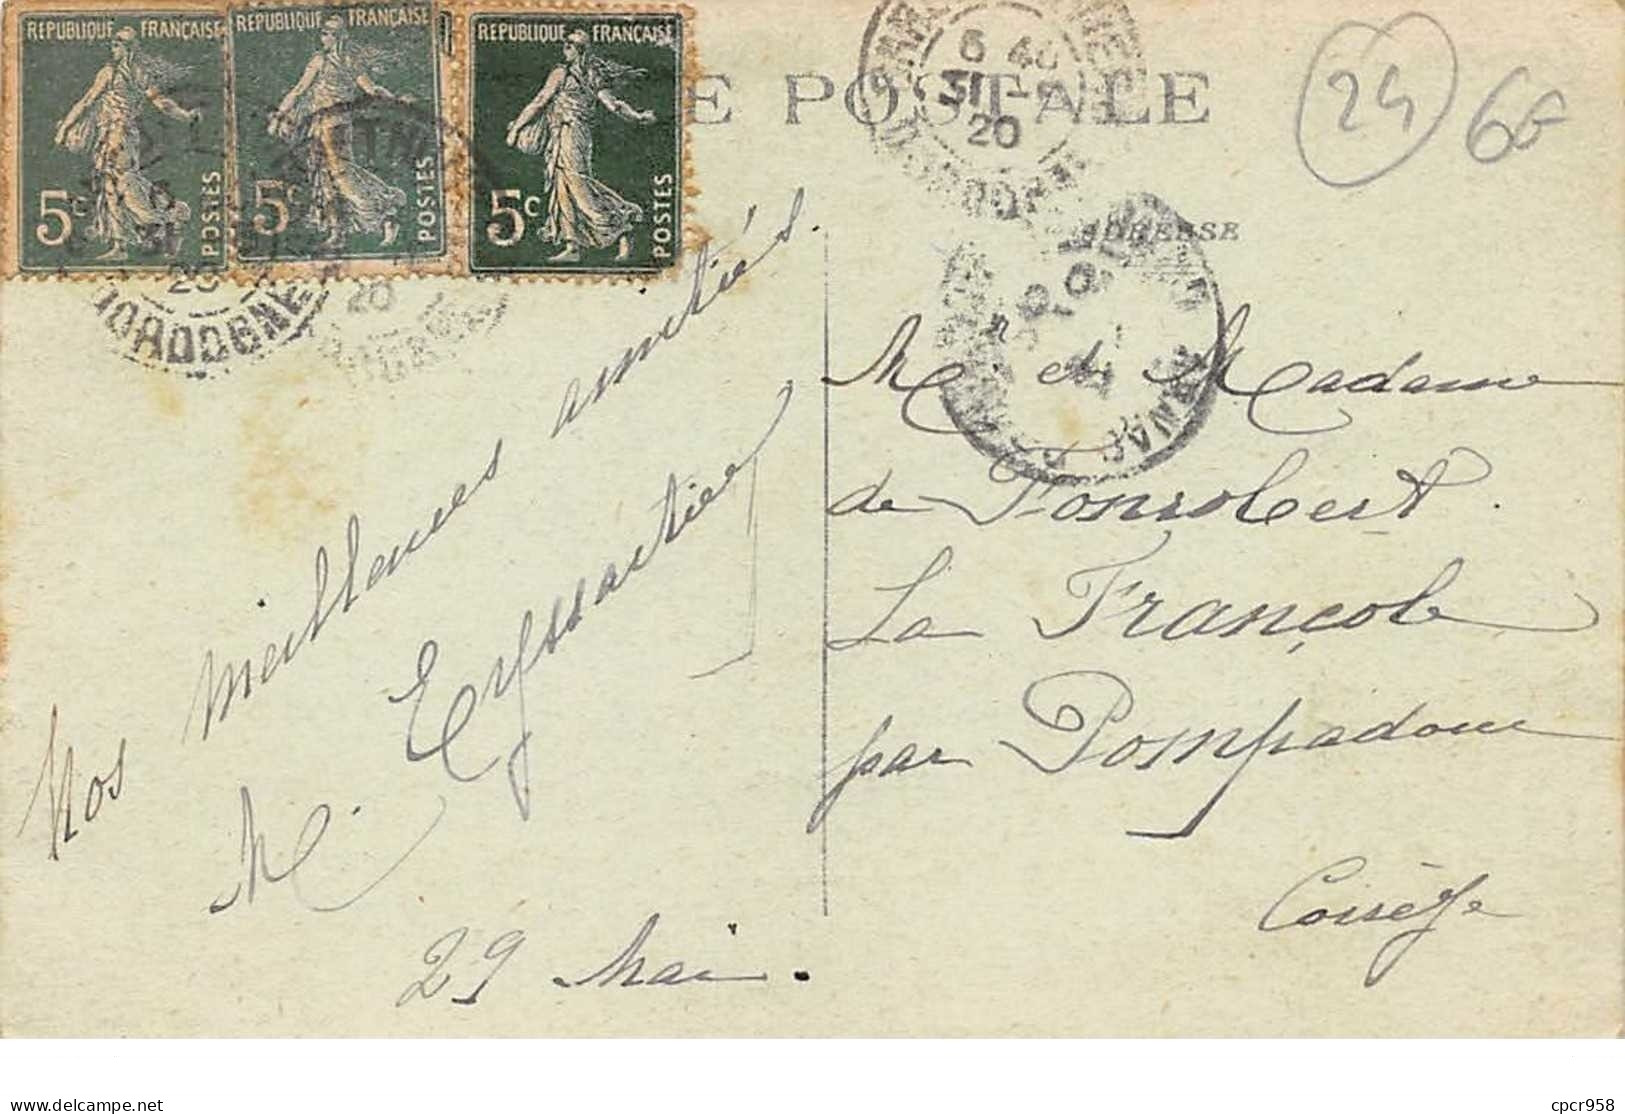 REPUBLIQUE FRANÇAISE
5c
POSTES
REPUBLIQUE FRANÇAISE
5c
POSTES
REPUBLIQUE FRANÇAISE
5c
POSTES
E POSTALE
ADRESSE
6 40
31 -
20
DORDOGNE
20
DORDOGNE
20
24
6E
Nos meilleures amitiés.
M.
29 Mai.
M et Madame
de Fonrobert.
La Françole
par Pompadour
Corrèze
delcampe.net
cpcr958